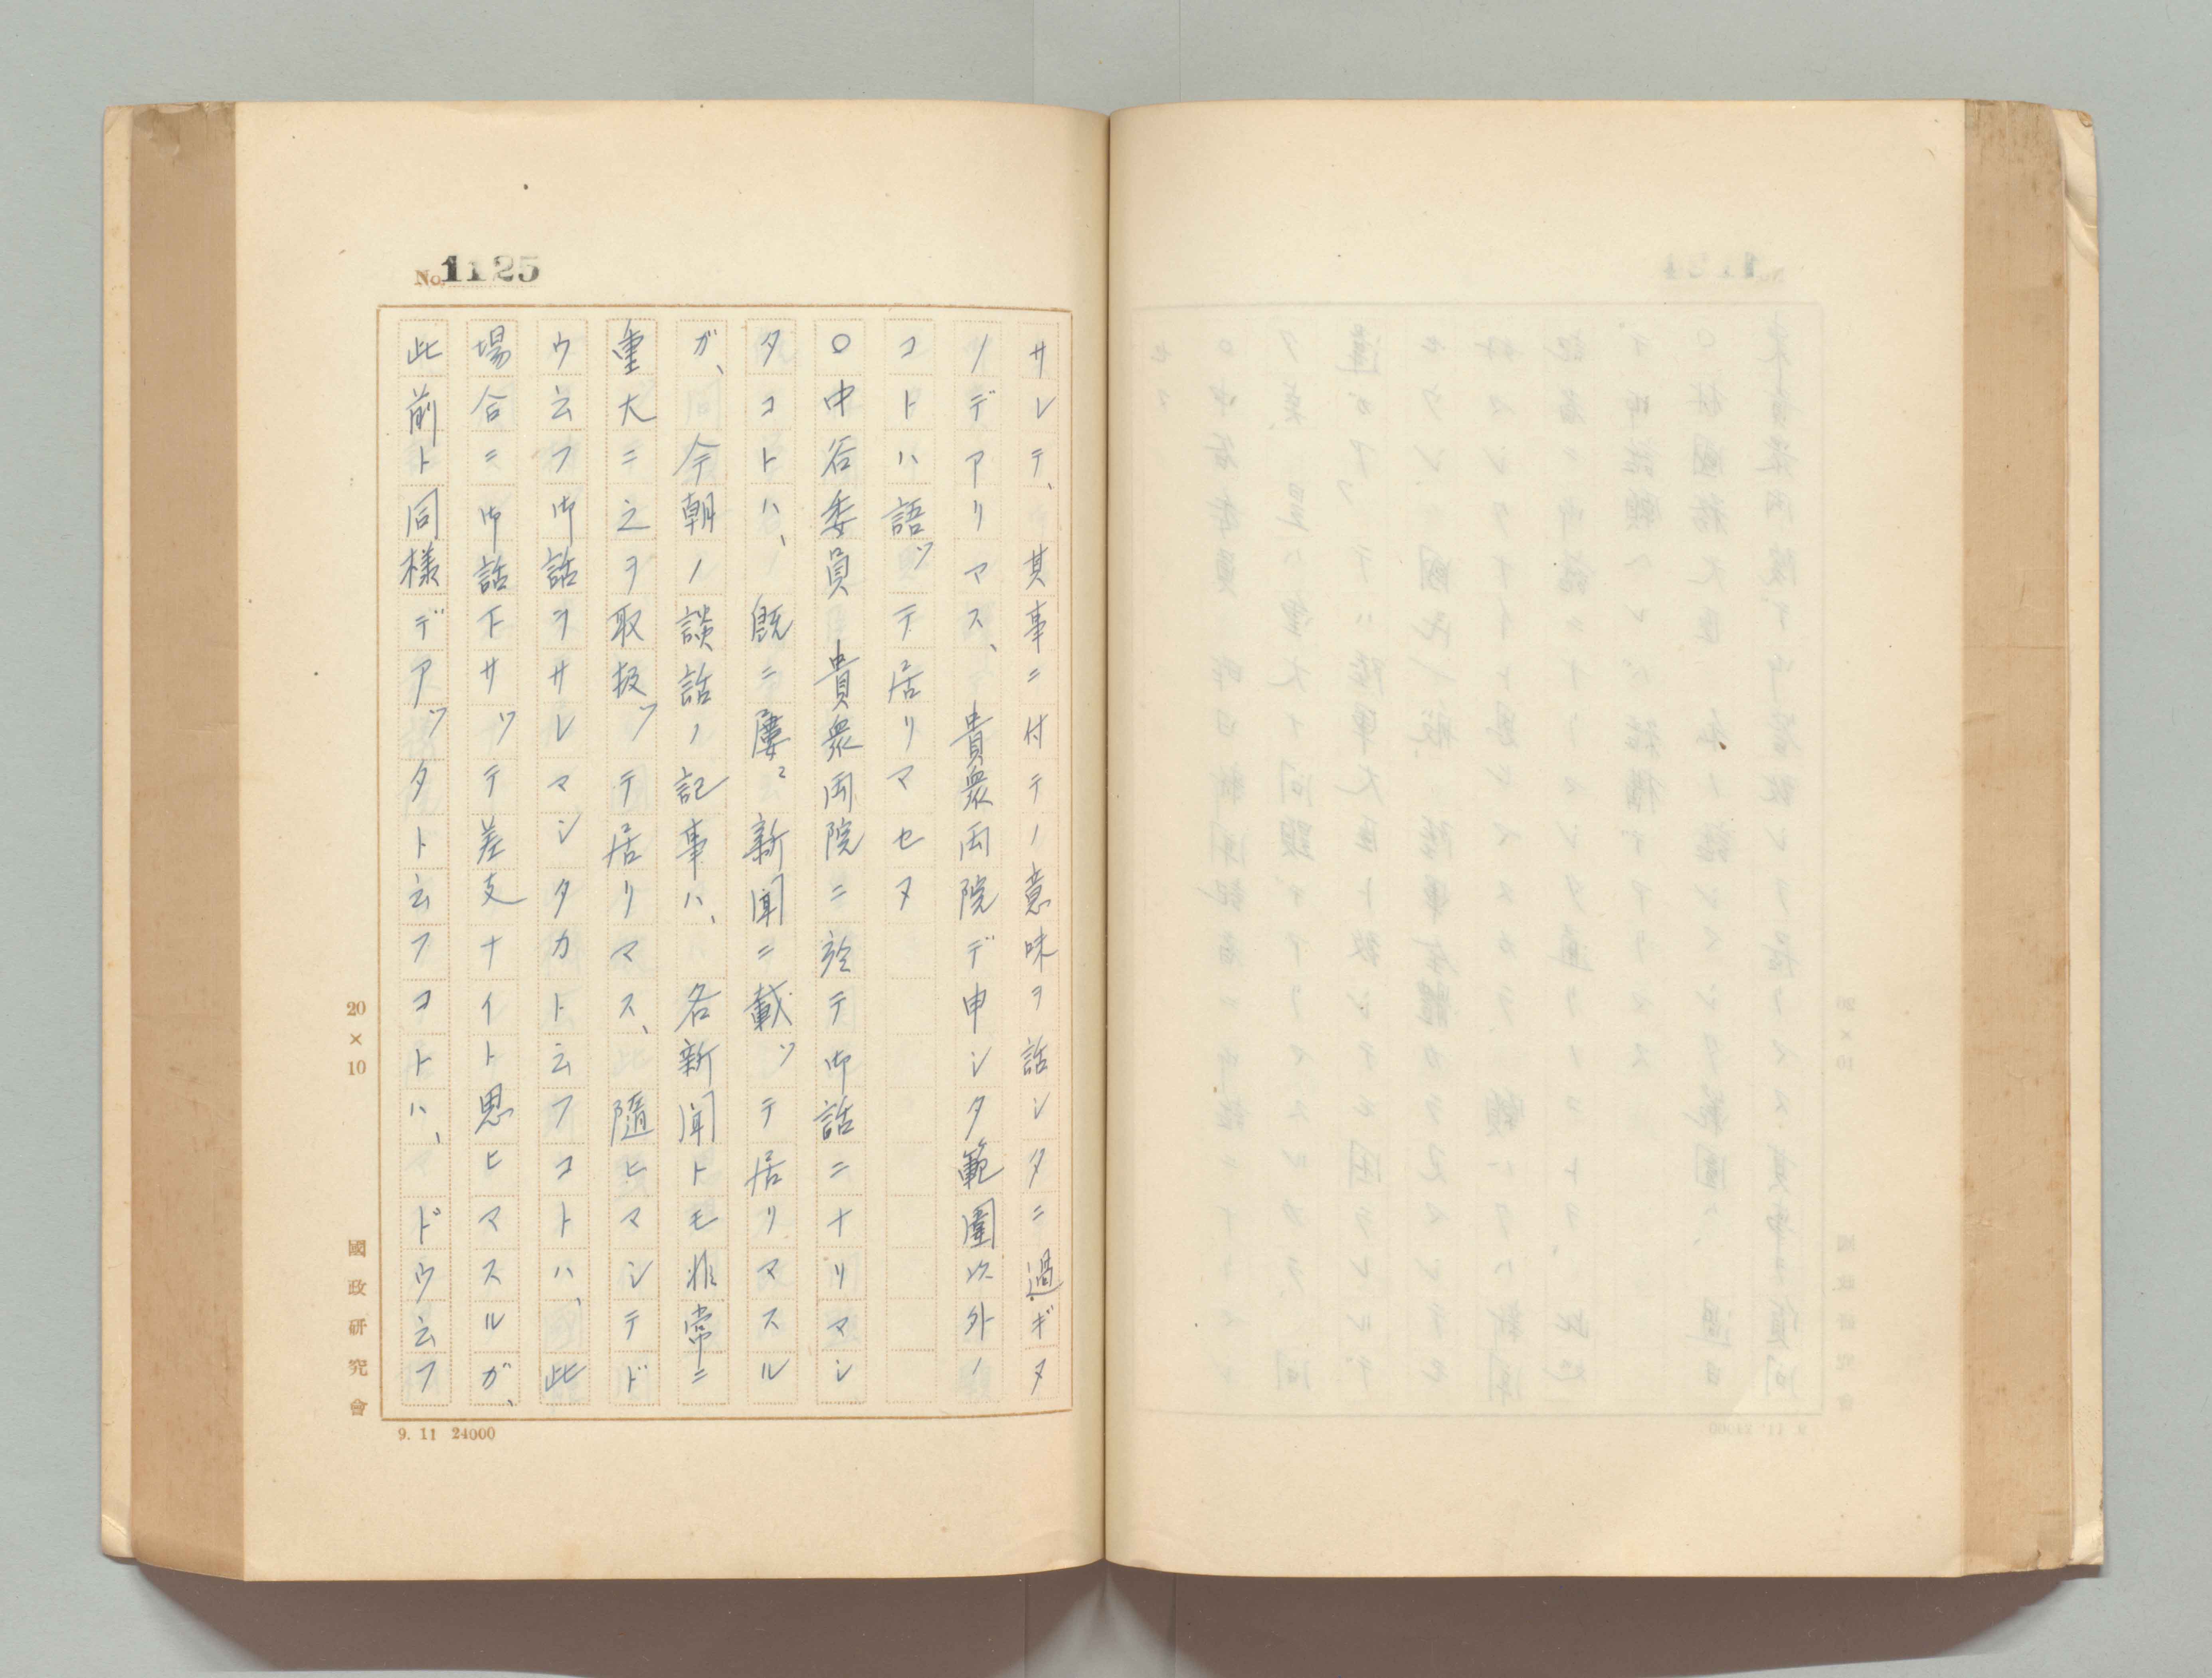 No. 1125
サレテ、其事ニ付テノ意味ヲ話シタニ過ギヌ
ノデアリマス、貴衆両院デ申シタ範圍以外ノ
コトハ語ツテ居リマセヌ
○中谷委員 貴衆両院ニ於テ御話ニナリマシ
タコトハ、既ニ屢〻新聞ニ載ツテ居リマスル
ガ、今朝ノ談話ノ記事ハ、各新聞トモ非常ニ
重大ニ之ヲ取扱ツテ居リマス、隨ヒマシテド
ウ云フ御話ヲサレマシタカト云フコトハ、此
場合ニ御話下サツテ差支ナイト思ヒマスルガ、
此前ト同様デアツタト云フコトハ、ドウ云フ
20×10
國政研究會
9. 11 24000